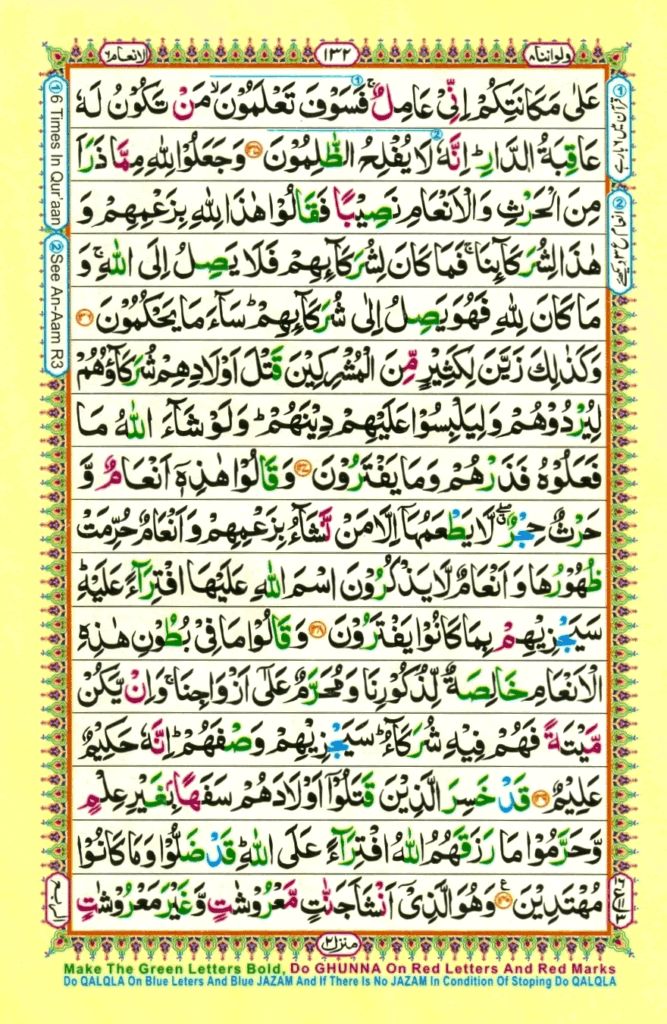 ولواننا ٨
١٣٢
الانعام ٦
عَلٰی مَکَانَتِکُمْ اِنِّیْ عَامِلٌ ۚ فَسَوْفَ تَعْلَمُوْنَ ۙ مَنْ تَکُوْنُ لَهٗ
عَاقِبَةُ الدَّارِ ؕ اِنَّهٗ لَا یُفْلِحُ الظّٰلِمُوْنَ ﴿۱۳۵﴾ وَ جَعَلُوْا لِلّٰهِ مِمَّا ذَرَاَ
مِنَ الْحَرْثِ وَ الْاَنْعَامِ نَصِیْبًا فَقَالُوْا هٰذَا لِلّٰهِ بِزَعْمِهِمْ وَ
هٰذَا لِشُرَکَآئِنَا ۚ فَمَا کَانَ لِشُرَکَآئِهِمْ فَلَا یَصِلُ اِلَی اللّٰهِ ۚ وَ
مَا کَانَ لِلّٰهِ فَهُوَ یَصِلُ اِلٰی شُرَکَآئِهِمْ ؕ سَآءَ مَا یَحْکُمُوْنَ ﴿۱۳۶﴾
وَ کَذٰلِكَ زَیَّنَ لِکَثِیْرٍ مِّنَ الْمُشْرِکِیْنَ قَتْلَ اَوْلَادِهِمْ شُرَکَآؤُهُمْ
لِیُرْدُوْهُمْ وَ لِیَلْبِسُوْا عَلَیْهِمْ دِیْنَهُمْ ؕ وَ لَوْ شَآءَ اللّٰهُ مَا
فَعَلُوْهُ فَذَرْهُمْ وَ مَا یَفْتَرُوْنَ ﴿۱۳۷﴾ وَ قَالُوْا هٰذِهٖۤ اَنْعَامٌ وَّ
حَرْثٌ حِجْرٌ ۖۗ لَّا یَطْعَمُهَاۤ اِلَّا مَنْ نَّشَآءُ بِزَعْمِهِمْ وَ اَنْعَامٌ حُرِّمَتْ
ظُهُوْرُهَا وَ اَنْعَامٌ لَّا یَذْکُرُوْنَ اسْمَ اللّٰهِ عَلَیْهَا افْتِرَآءً عَلَیْهِ ؕ
سَیَجْزِیْهِمْ بِمَا کَانُوْا یَفْتَرُوْنَ ﴿۱۳۸﴾ وَ قَالُوْا مَا فِیْ بُطُوْنِ هٰذِهِ
الْاَنْعَامِ خَالِصَةٌ لِّذُکُوْرِنَا وَ مُحَرَّمٌ عَلٰۤی اَزْوَاجِنَا ۚ وَ اِنْ یَّکُنْ
مَّیْتَةً فَهُمْ فِیْهِ شُرَکَآءُ ؕ سَیَجْزِیْهِمْ وَصْفَهُمْ ؕ اِنَّهٗ حَکِیْمٌ
عَلِیْمٌ ﴿۱۳۹﴾ قَدْ خَسِرَ الَّذِیْنَ قَتَلُوْۤا اَوْلَادَهُمْ سَفَهًۢا بِغَیْرِ عِلْمٍ
وَّ حَرَّمُوْا مَا رَزَقَهُمُ اللّٰهُ افْتِرَآءً عَلَی اللّٰهِ ؕ قَدْ ضَلُّوْا وَ مَا کَانُوْا
مُهْتَدِیْنَ ﴿۱۴۰﴾ وَ هُوَ الَّذِیْۤ اَنْشَاَ جَنّٰتٍ مَّعْرُوْشٰتٍ وَّ غَیْرَ مَعْرُوْشٰتٍ
① 6 Times In Qur'aan
② See An-Aam R3
الربع
منزل ٢
Make The Green Letters Bold, Do GHUNNA On Red Letters And Red Marks
Do QALQLA On Blue Leters And Blue JAZAM And If There Is No JAZAM In Condition Of Stoping Do QALQLA